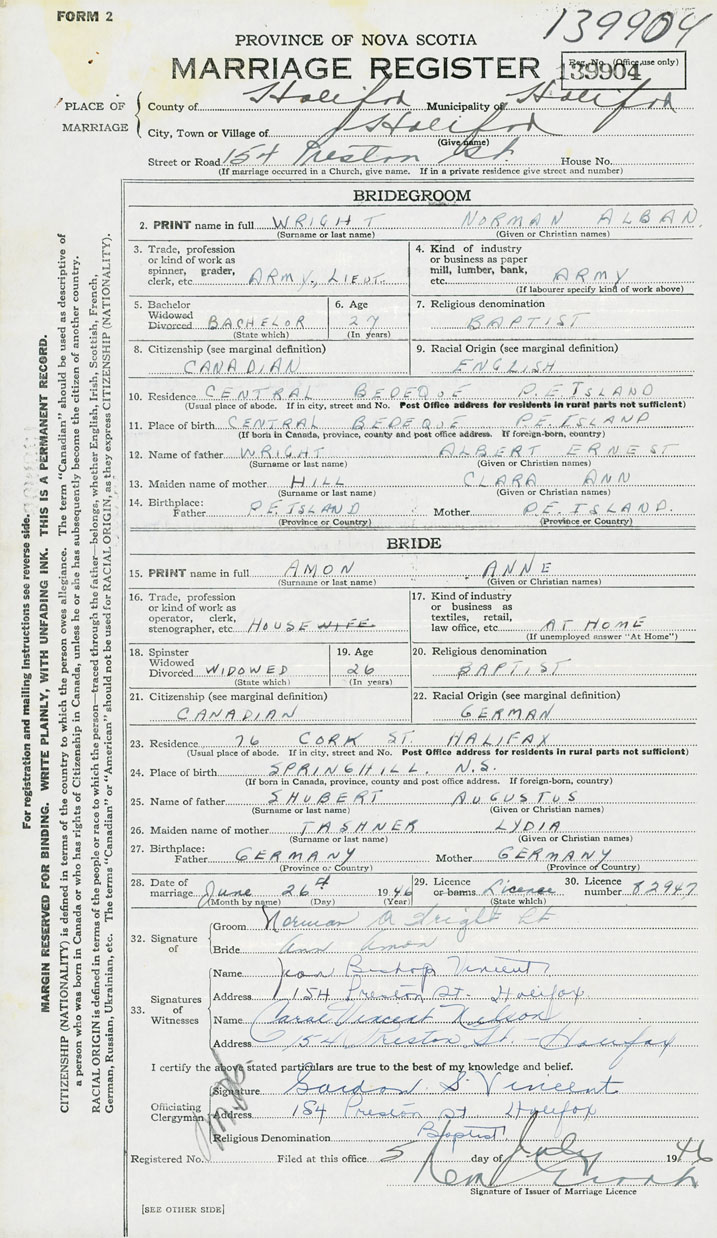 FORM 2
139904
PROVINCE OF NOVA SCOTIA
MARRIAGE REGISTER
Reg. No. (Office use only)
139904
PLACE OF MARRIAGE
County of Halifax Municipality of Halifax
City, Town or Village of Halifax
(Give name)
Street or Road 154 Preston St. House No.
(If marriage occurred in a Church, give name. If in a private residence give street and number)
BRIDEGROOM
2. PRINT name in full WRIGHT NORMAN ALBAN.
(Surname or last name) (Given or Christian names)
3. Trade, profession or kind of work as spinner, grader, clerk, etc. ARMY, LIEUT.
4. Kind of industry or business as paper mill, lumber, bank, etc. ARMY
(If labourer specify kind of work above)
5. Bachelor Widowed Divorced BACHELOR
(State which)
6. Age 27
(In years)
7. Religious denomination
BAPTIST
8. Citizenship (see marginal definition)
CANADIAN
9. Racial Origin (see marginal definition)
ENGLISH
10. Residence CENTRAL BEDEQUE P.E ISLAND
(Usual place of abode. If in city, street and No. Post Office address for residents in rural parts not sufficient)
11. Place of birth CENTRAL BEDEQUE P.E. ISLAND
(If born in Canada, province, county and post office address. If foreign-born, country)
12. Name of father WRIGHT ALBERT ERNEST
(Surname or last name) (Given or Christian names)
13. Maiden name of mother HILL CLARA ANN
(Surname or last name) (Given or Christian names)
14. Birthplace: Father P.E. ISLAND Mother P.E. ISLAND.
(Province or Country) (Province or Country)
BRIDE
15. PRINT name in full AMON ANNE
(Surname or last name) (Given or Christian names)
16. Trade, profession or kind of work as operator, clerk, stenographer, etc. HOUSE WIFE
17. Kind of industry or business as textiles, retail, law office, etc. AT HOME
(If unemployed answer "At Home")
18. Spinster Widowed Divorced WIDOWED
(State which)
19. Age 26
(In years)
20. Religious denomination
BAPTIST
21. Citizenship (see marginal definition)
CANADIAN
22. Racial Origin (see marginal definition)
GERMAN
23. Residence 76 CORK ST. HALIFAX
(Usual place of abode. If in city, street and No. Post Office address for residents in rural parts not sufficient)
24. Place of birth SPRINGHILL, N.S.
(If born in Canada, province, county and post office address. If foreign-born, country)
25. Name of father SHUBERT AUGUSTUS
(Surname or last name) (Given or Christian names)
26. Maiden name of mother TASHNER LYDIA
(Surname or last name) (Given or Christian names)
27. Birthplace: Father GERMANY Mother GERMANY
(Province or Country) (Province or Country)
28. Date of marriage June 26th 1946
(Month by name) (Day) (Year)
29. Licence or banns License
(State which)
30. Licence number 82947
32. Signature of
Groom Norman A Wright Lt
Bride Ann Amon
33. Signatures of Witnesses
Name Jean Bishop Vincent
Address 154 Preston St. Halifax
Name Carol Vincent Nelson
Address 154 Preston St. - Halifax
I certify the above stated particulars are true to the best of my knowledge and belief.
Officiating Clergyman
Signature Gordon S. Vincent
Address 154 Preston St Halifax
Religious Denomination Baptist
Registered No. Filed at this office 5 day of July 1946
Signature of Issuer of Marriage Licence
[SEE OTHER SIDE]
For registration and mailing instructions see reverse side.
MARGIN RESERVED FOR BINDING. WRITE PLAINLY, WITH UNFADING INK. THIS IS A PERMANENT RECORD.
CITIZENSHIP (NATIONALITY) is defined in terms of the country to which the person owes allegiance. The term "Canadian" should be used as descriptive of
a person who was born in Canada or who has rights of Citizenship in Canada, unless he or she has subsequently become the citizen of another country.
RACIAL ORIGIN is defined in terms of the people or race to which the person—traced through the father—belongs, whether English, Irish, Scottish, French,
German, Russian, Ukrainian, etc. The terms "Canadian" or "American" should not be used for RACIAL ORIGIN, as they express CITIZENSHIP (NATIONALITY).